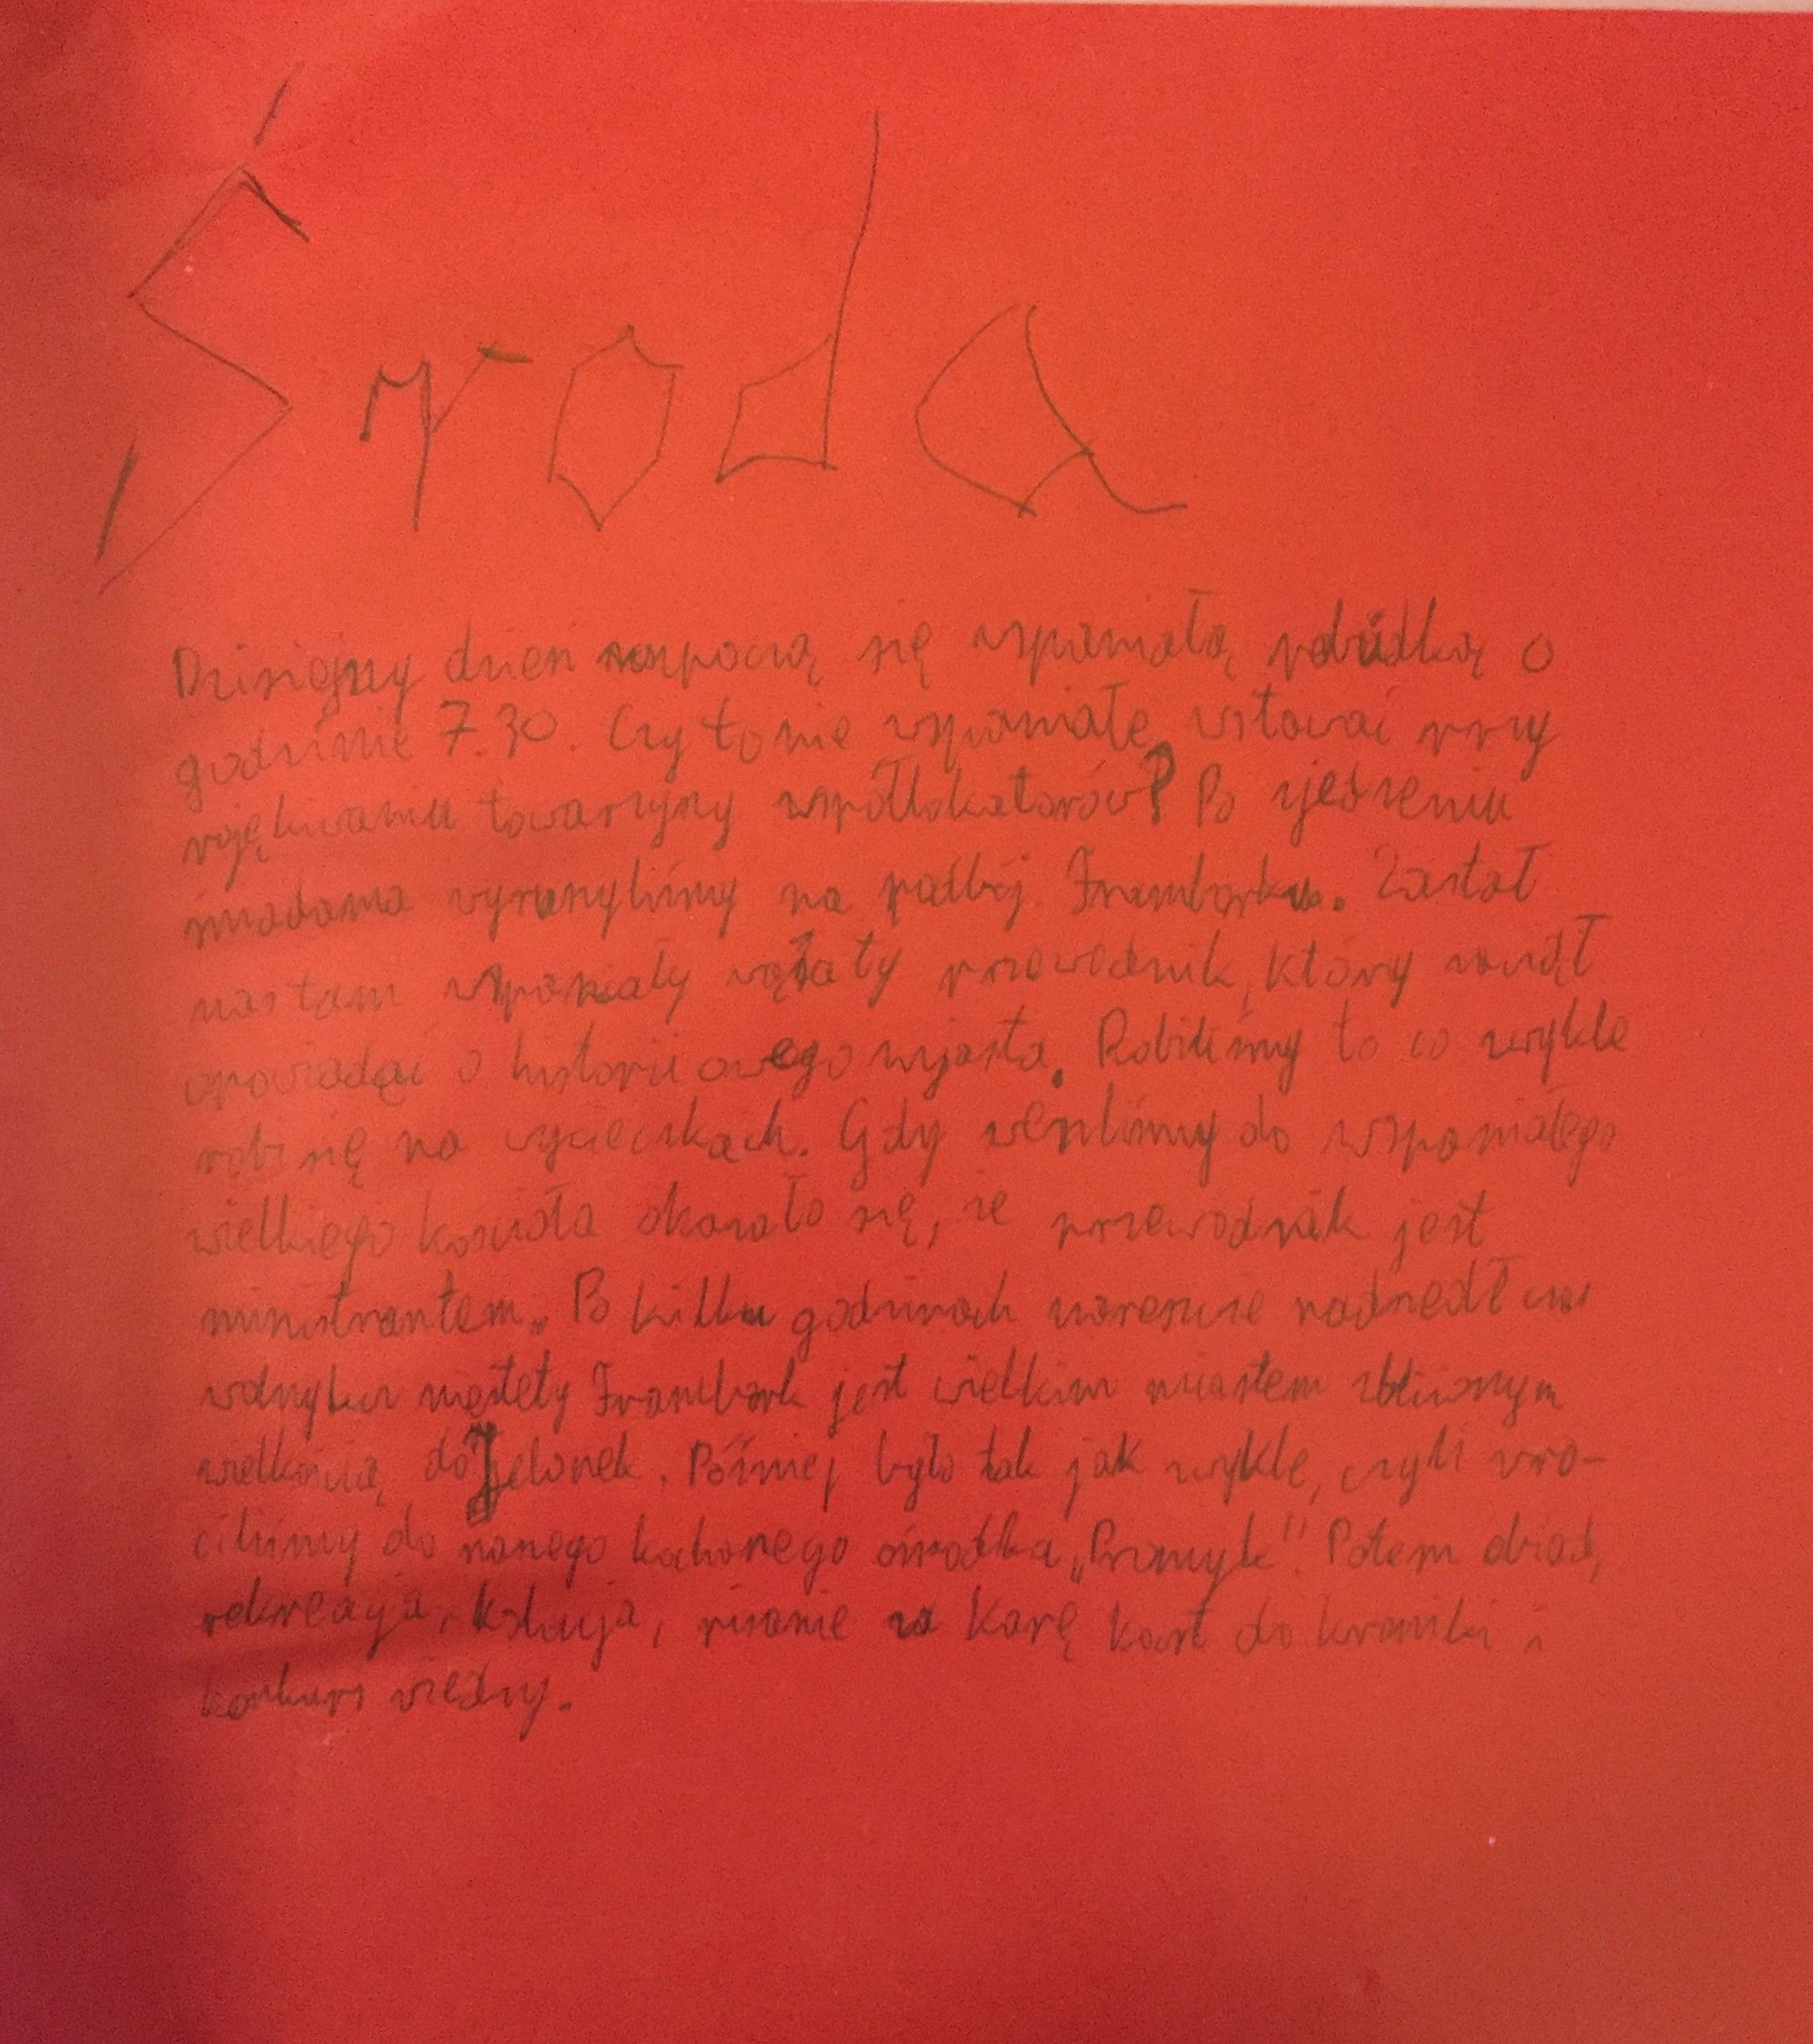 Środa
Dzisiejszy dzień rozpoczą się wspaniałą pobudką o
godzinie 7.30. Czy to nie wspaniałe wstawać przy
pojękiwaniu towarzyszy współlokatorów? Po zjedzeniu
śniadania wyruszyliśmy na podbój Fromborka. Zastał
nas tam wspaniały wąsaty przewodnik, który zaczął
opowiadać o historii owego mjasta. Robiliśmy to co zwykle
robi się na wycieczkach. Gdy weszliśmy do wspaniałego
wielkiego kościoła okazało się, że przewodnik jest
ministrantem. Po kilku godzinach nareszcie nadszedł czas
wolny lecz niestety Frombork jest wielkim miastem zbliżonym
wielkością do Jelonek. Później było tak jak zwykle, czyli wró-
ciliśmy do naszego kochanego ośrodka „Promyk". Potem obiad,
rekreacja, kolacja, pisanie za karę kart do kroniki i
konkurs wiedzy.